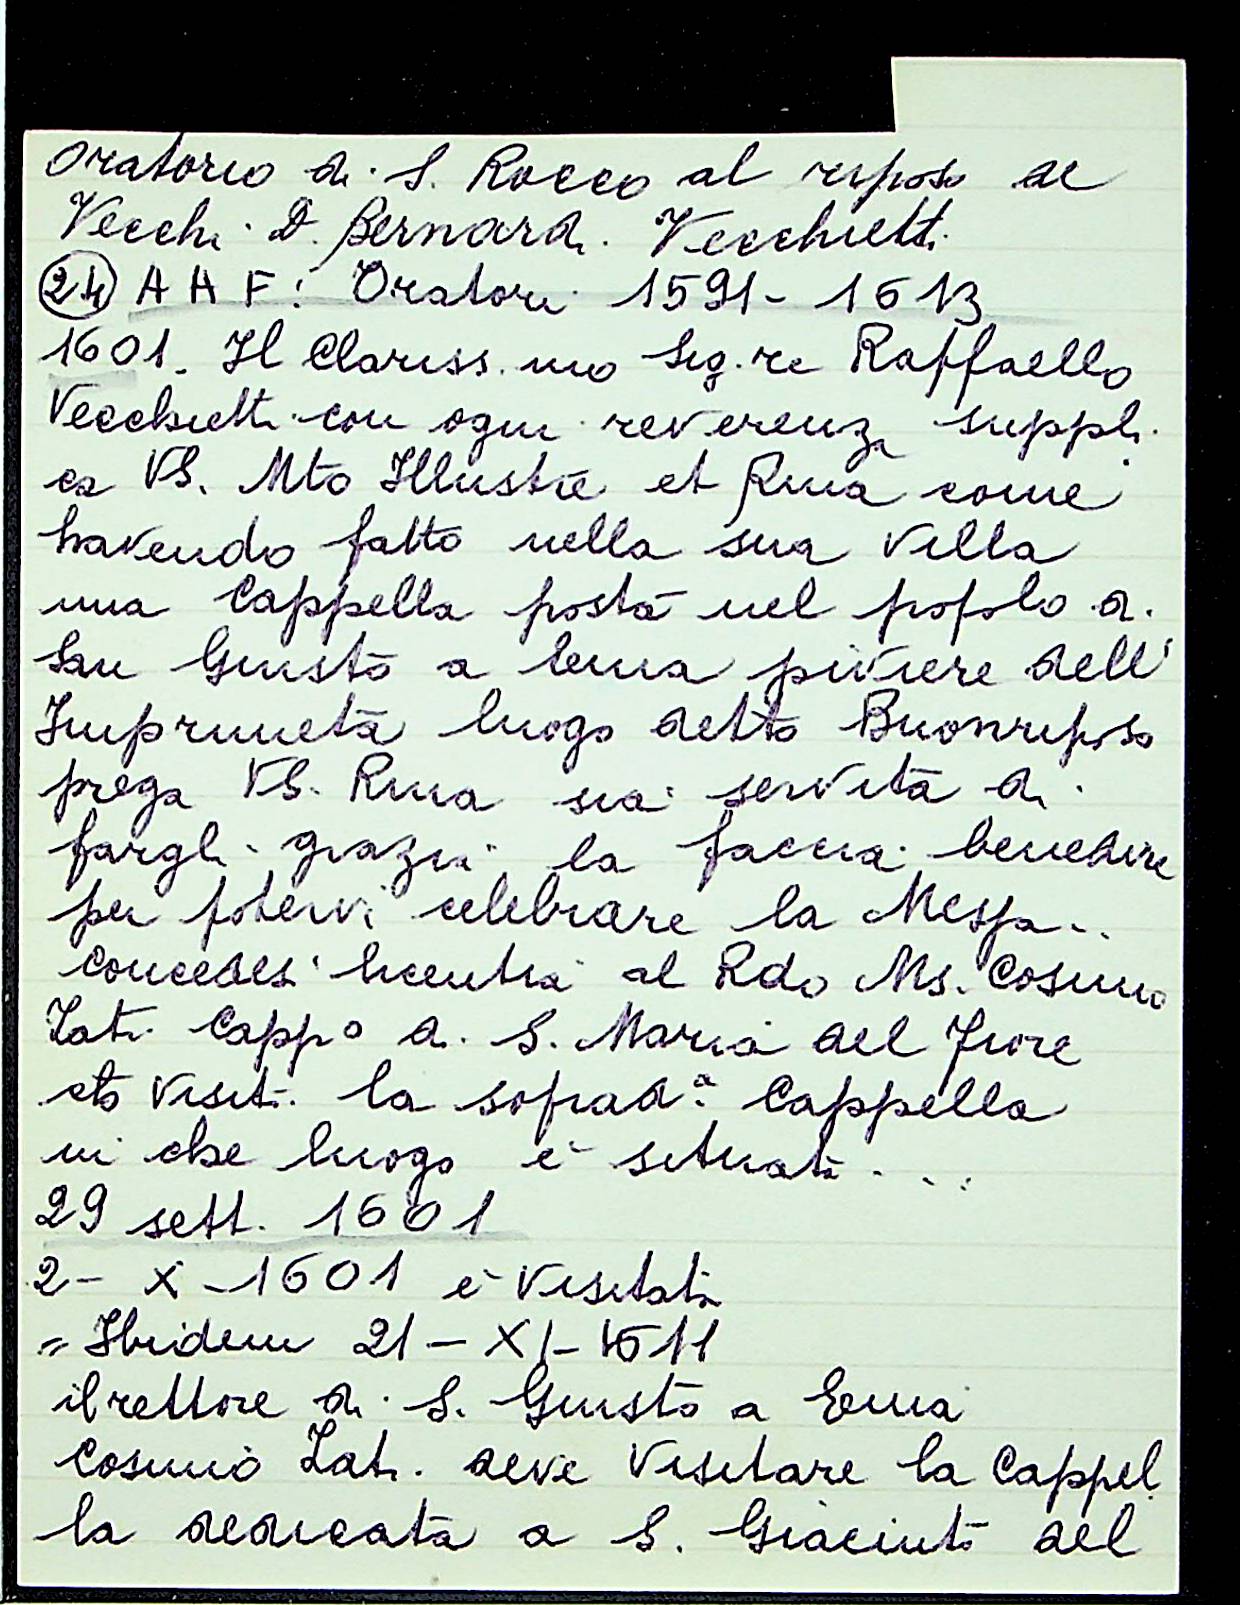 Oratorio di S. Rocco al riposo de
Vecchi. D. Bernardi. Vecchietti
(24) A A F: Oratori 1591 - 1613
1601. Il Clariss.mo Sig.re Raffaello
Vecchietti con ogni reverenza suppli
ca VS. Mto Illustre et Rma come
havendo fatto nella sua villa
una Cappella posta nel popolo di
San Giusto a Ema piviere dell'
Impruneta luogo detto Buonriposo
prega VS. Rma sia servita di
fargli grazia la faccia benedire
per potervi celebrare la Messa...
concedesi licentia al Rdo Ms. Cosimo
Lati Capp° di S. Maria del Fiore
visiti la soprad.ª Cappella
in che luogo è situata...
29 sett. 1601
2 - X - 1601 è visitata
= Ibidem 21 - XI - 1611
il rettore di S. Giusto a Ema
Cosimo Lati. deve visitare la Cappel
la dedicata a S. Giacinto del